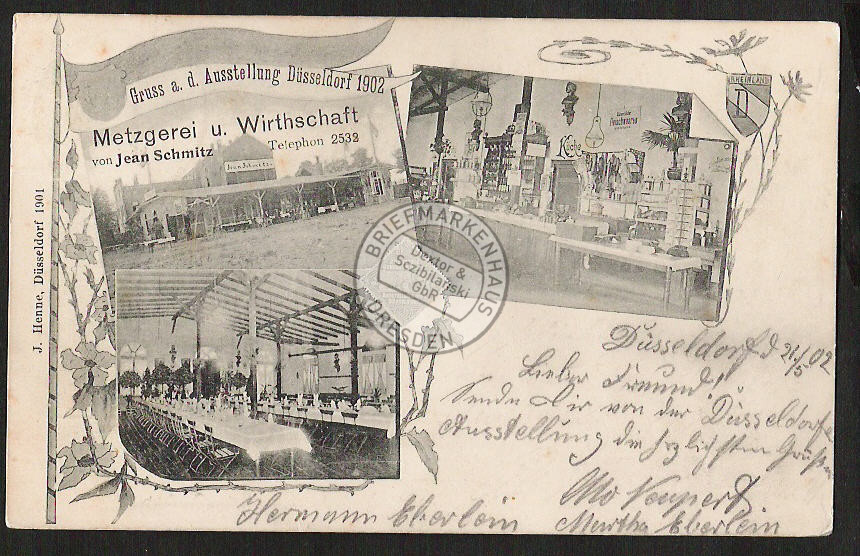 Gruss a. d. Ausstellung Düsseldorf 1902
Metzgerei u. Wirthschaft
von Jean Schmitz
Telephon 2532
Jean Schmitz
Küche
RHEINLAND
D
J. Henne, Düsseldorf 1901
BRIEFMARKENHAUS
Dextor &
Sczibilanski
GbR
DRESDEN
Düsseldorf d 21/5 02
Lieber Freund!
Sende Dir von der Düsseldorfer
Ausstellung die hrzlichsten Grüße
Neupert
Hermann Eberlein
Martha Eberlein